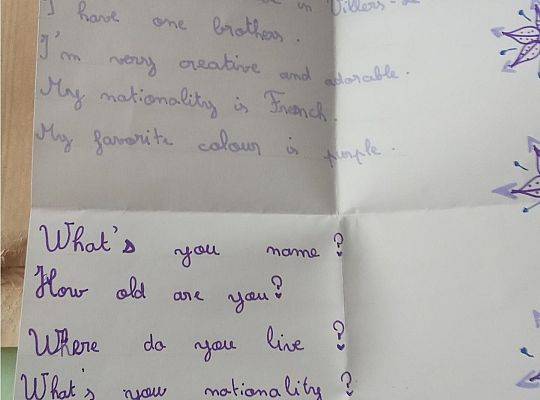 in Villers-
I have one brothers.
I'm very creative and adorable.
My nationality is French.
My favorite colour is purple.
What's you name?
How old are you?
Where do you live?
What's you nationality?